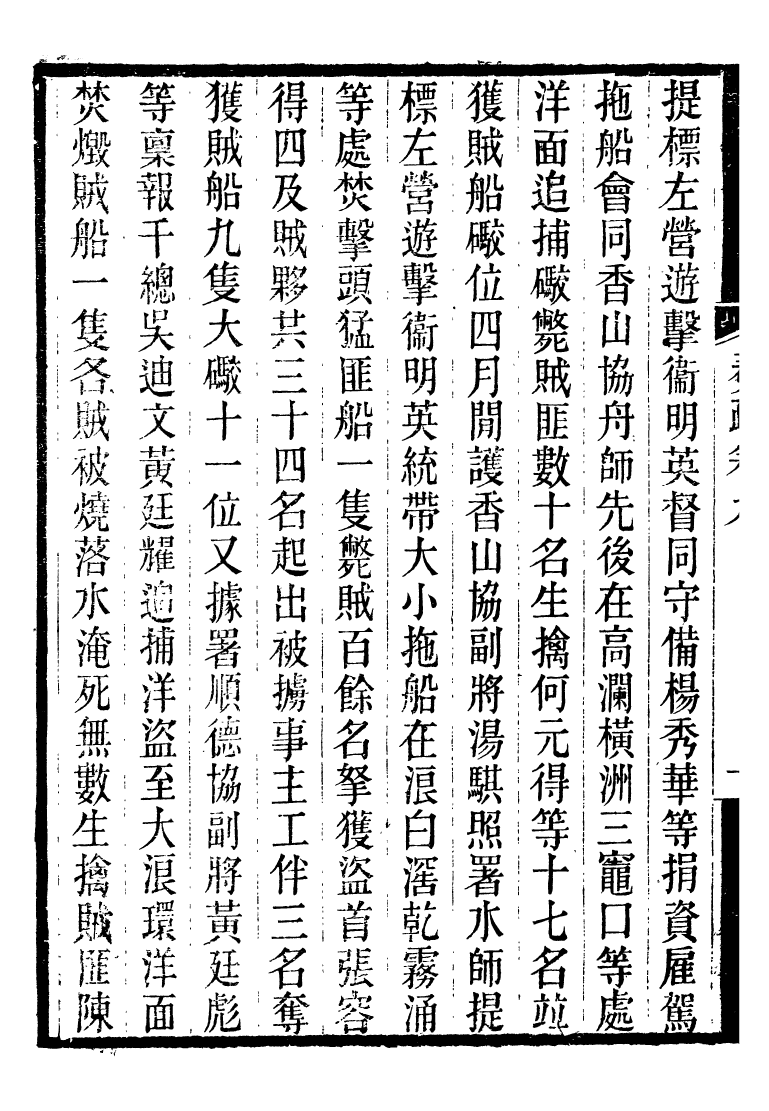 提標左營遊擊衞明英督同守備楊秀華等捐資雇駕
拖船會同香山協舟師先後在高瀾橫洲三竈口等處
洋面追捕礮斃賊匪數十名生擒何元得等十七名竝
獲賊船礮位四月閒護香山協副將湯騏照署水師提
標左營遊擊衞明英統帶大小拖船在浪白滘乾霧涌
等處焚擊頭猛匪船一隻斃賊百餘名拏獲盜首張容
得四及賊夥共三十四名起出被擄事主工伴三名奪
獲賊船九隻大礮十一位又據署順德協副將黃廷彪
等稟報千總吳迪文黃廷耀追捕洋盜至大浪環洋面
焚燬賊船一隻各賊被燒落水淹死無數生擒賊匪陳